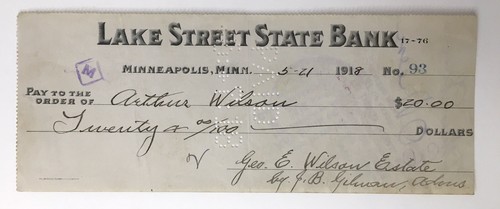 LAKE STREET STATE BANK 17-76
MINNEAPOLIS, MINN. 5-21 1918 No. 93
M
PAY TO THE
ORDER OF Arthur Wilson $20.00
Twenty & 00/100 DOLLARS
Geo. E. Wilson Estate
by J. B. Gilman, Adms